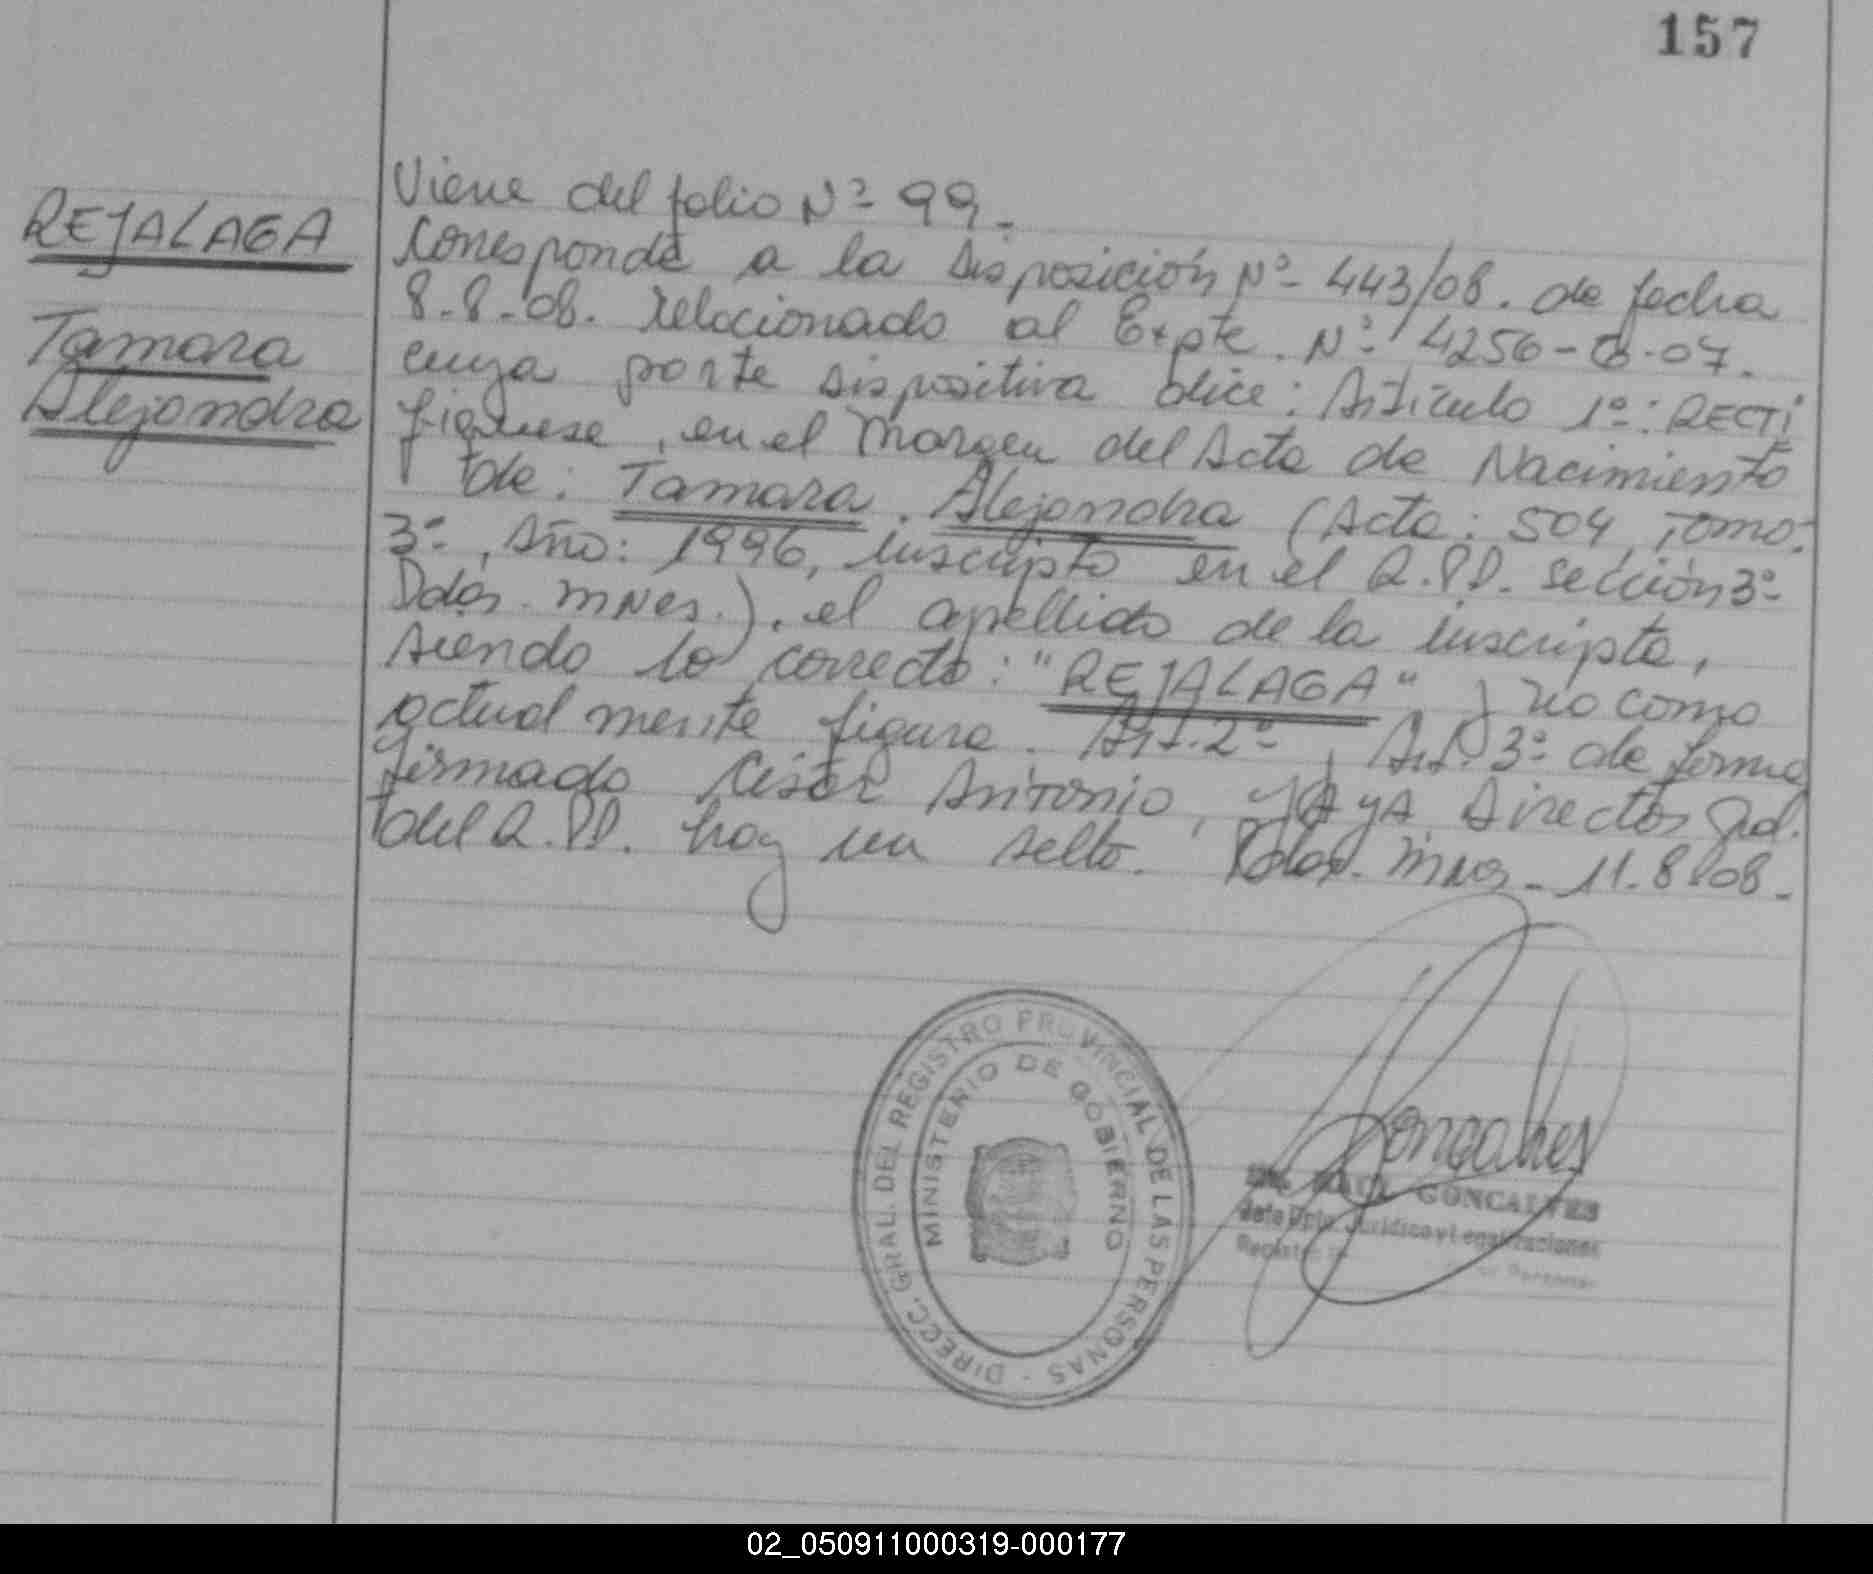 157
REJALAGA
Tamara
Alejandra
Viene del folio Nº 99.
Corresponde a la Disposición Nº 443/08. de fecha
8-8-08. relacionado al Expte. Nº 4256-B-07.
cuya parte dispositiva dice: Artículo 1º: RECTI
fiquese, en el Margen del Acta de Nacimiento
de: Tamara Alejandra (Acta: 504, Tomo:
3º, Año: 1996, inscripto en el R.P.P. sección 3º
Pdas. Mnes.), el apellido de la inscripta,
siendo lo correcto: "REJALAGA" y no como
actualmente figura. Art. 2º y Art. 3º de forma
firmado César Antonio, YAYA, Director Gral.
del R.P.P. hay un sello. Pdas. Mnes - 11-8-08-
DIRECC. GRAL. DEL REGISTRO PROVINCIAL DE LAS PERSONAS -
MINISTERIO DE GOBIERNO
Goncalves
RAUL GONCALVES
Jefe Dpto. Jurídico y Legalizaciones
02_050911000319-000177